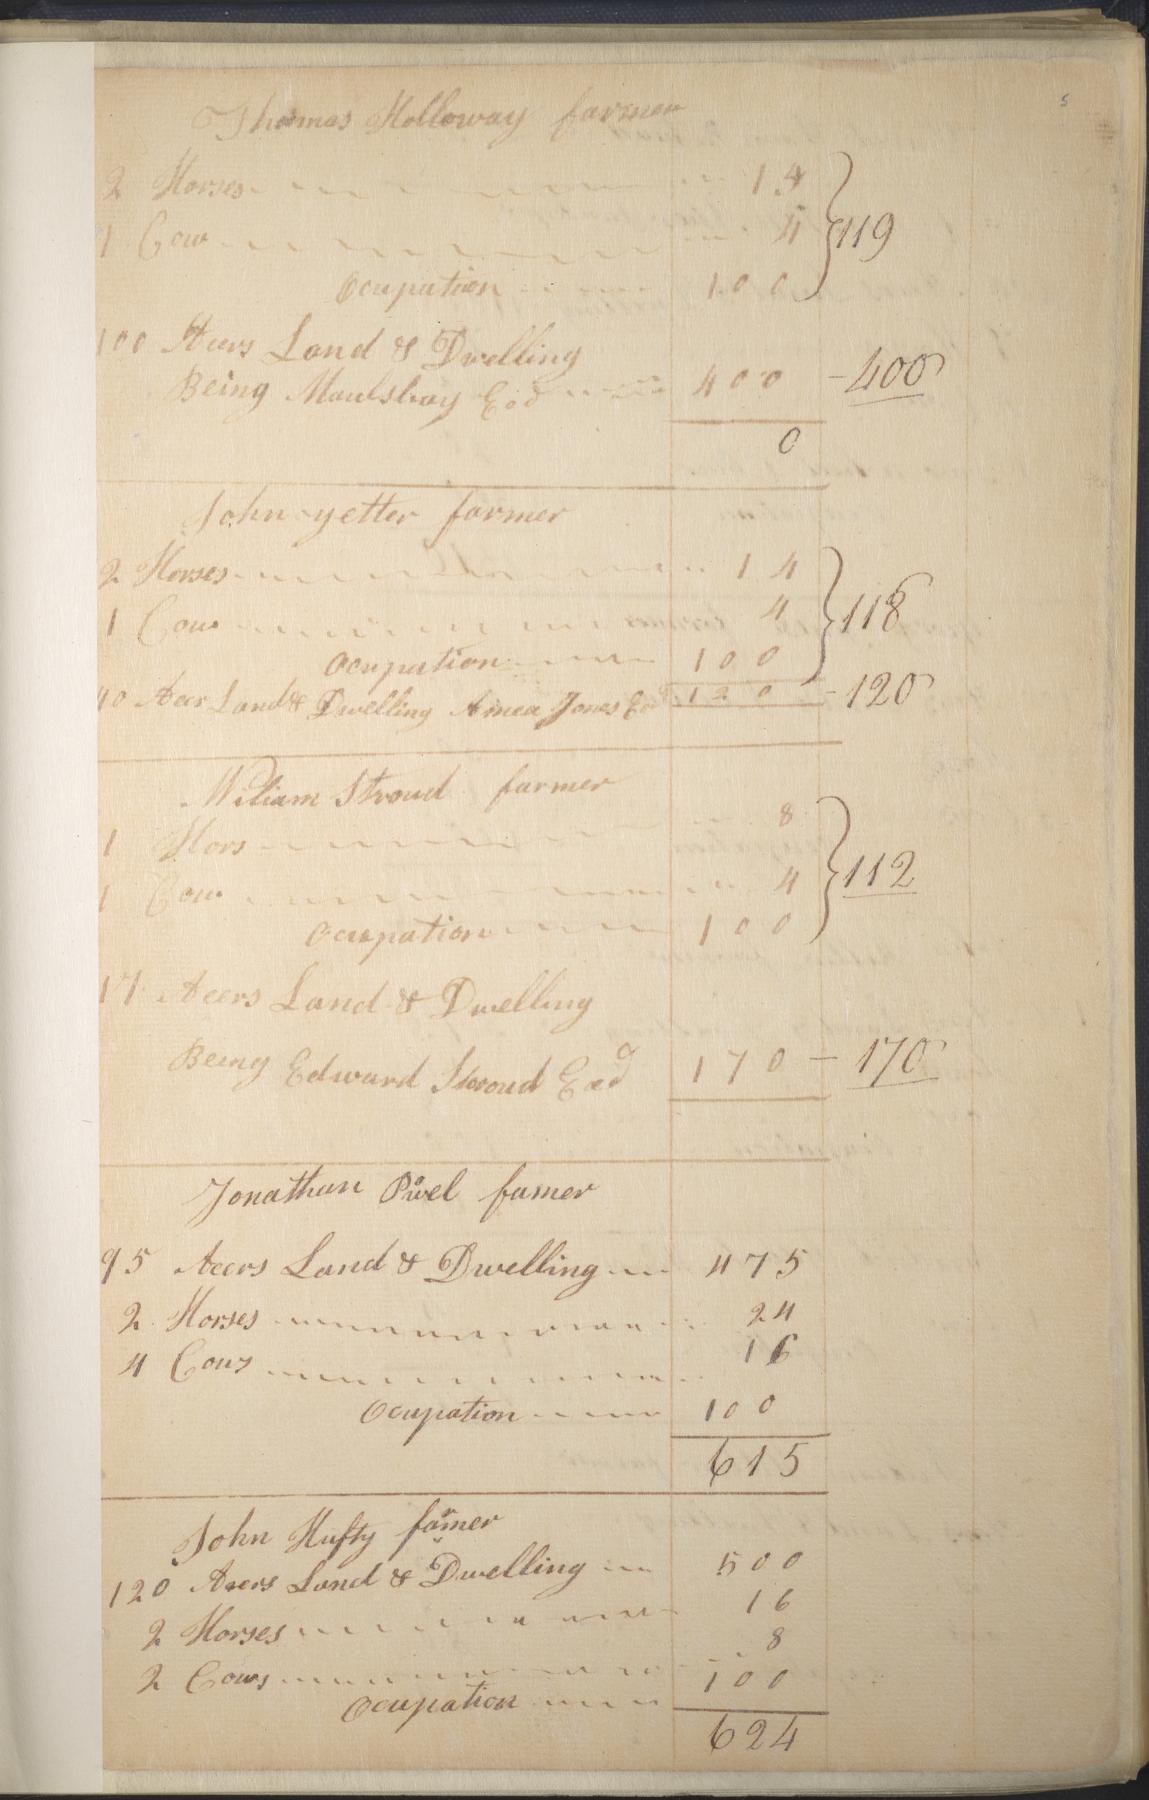 5
Thomas Holloway farmer
2 Horses 14
1 Cow 4 } 119
Ocupation 100
100 Acers Land & Dwelling
Being Maulsbay Eod 400 - 400
0
John yetter farmer
2 Horses 14
1 Cow 4 } 118
Ocupation 100
40 Acer Land & Dwelling Amea Jones 120 - 120
Wiliam Stroud farmer
1 Hors 8
1 Cow 4 } 112
Ocupation 100
17 Acers Land & Dwelling
Being Edward Stroud 170 - 170
Jonathan famer
95 Acers Land & Dwelling 475
2 Horses 24
4 Cows 16
Ocupation 100
615
John Hufty farmer
120 Acers Land & Dwelling 500
2 Horses 16
2 Cows 8
Ocupation 100
624